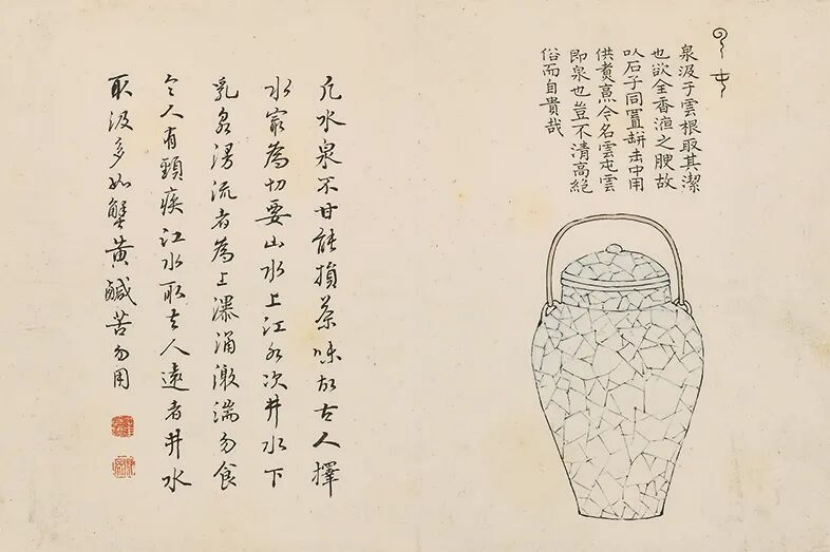 云屯
泉汲于雲根取其潔
也欲全香液之腴故
㕥石子同置缾缶中用
供煑烹令名雲屯雲
即泉也豈不清高絕
俗而自貴哉
凡水泉不甘能損茶味故古人擇
水寂為切要山水上江水次井水下
乳泉漫流者為上瀑涌漱湍勿食
令人有頸疾江水取去人遠者井水
取汲多如蟹黃鹹苦勿用